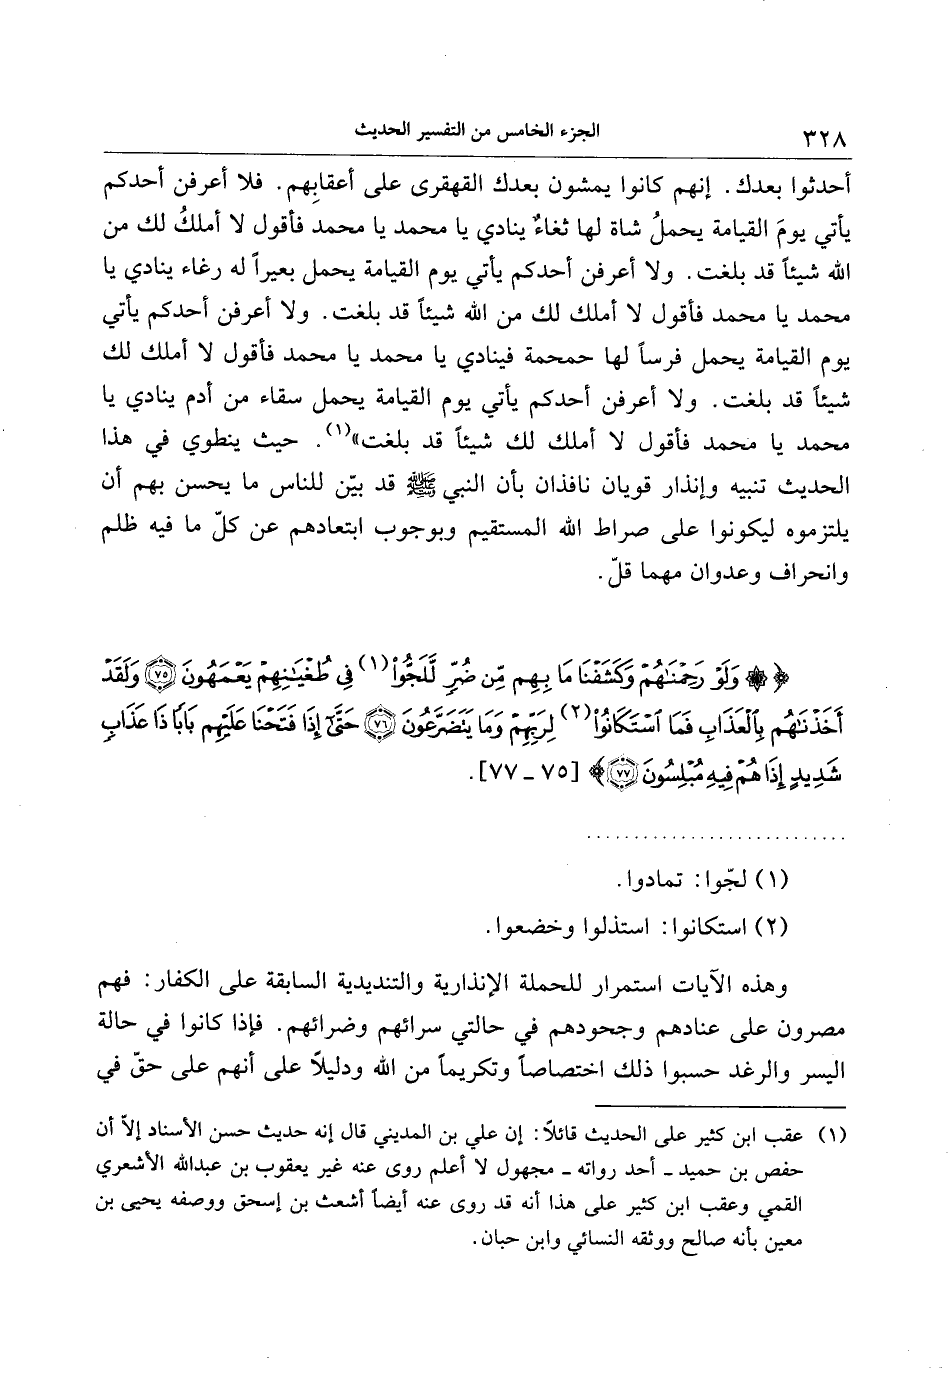 ٣٢٨
الجزء الخامس من التفسير الحديث
أحدثوا بعدك. إنهم كانوا يمشون بعدك القهقرى على أعقابِهم. فلا أعرفن أحدكم
يأتي يومَ القيامة يحملُ شاة لها ثغاءٌ ينادي يا محمد يا محمد فأقول لا أملكُ لك من
الله شيئاً قد بلغت. ولا أعرفن أحدكم يأتي يوم القيامة يحمل بعيراً له رغاء ينادي يا
محمد يا محمد فأقول لا أملك لك من الله شيئاً قد بلغت. ولا أعرفن أحدكم يأتي
يوم القيامة يحمل فرساً لها حمحمة فينادي يا محمد يا محمد فأقول لا أملك لك
شيئاً قد بلغت. ولا أعرفن أحدكم يأتي يوم القيامة يحمل سقاء من أدم ينادي يا
محمد يا محمد فأقول لا أملك لك شيئاً قد بلغت»(١). حيث ينطوي في هذا
الحديث تنبيه وإنذار قويان نافذان بأن النبي ﷺ قد بيّن للناس ما يحسن بهم أن
يلتزموه ليكونوا على صراط الله المستقيم وبوجوب ابتعادهم عن كلّ ما فيه ظلم
وانحراف وعدوان مهما قلّ.
﴿ ۞ وَلَوْ رَحِمْنَاهُمْ وَكَشَفْنَا مَا بِهِم مِّن ضُرٍّ لَّلَجُّواْ(١) فِى طُغْيَـٰنِهِمْ يَعْمَهُونَ ﴿٧٥﴾ وَلَقَدْ
أَخَذْنَـٰهُم بِالْعَذَابِ فَمَا اسْتَكَانُواْ(٢) لِرَبِّهِمْ وَمَا يَتَضَرَّعُونَ ﴿٧٦﴾ حَتَّىٰٓ إِذَا فَتَحْنَا عَلَيْهِم بَابًا ذَا عَذَابٍ
شَدِيدٍ إِذَا هُمْ فِيهِ مُبْلِسُونَ ﴿٧٧﴾﴾ [٧٥ ـ ٧٧].
(١) لجّوا: تمادوا.
(٢) استكانوا: استذلوا وخضعوا.
وهذه الآيات استمرار للحملة الإنذارية والتنديدية السابقة على الكفار: فهم
مصرون على عنادهم وجحودهم في حالتي سرائهم وضرائهم. فإذا كانوا في حالة
اليسر والرغد حسبوا ذلك اختصاصاً وتكريماً من الله ودليلاً على أنهم على حقّ في
(١) عقب ابن كثير على الحديث قائلاً: إن علي بن المديني قال إنه حديث حسن الأسناد إلاّ أن
حفص بن حميد ـ أحد رواته ـ مجهول لا أعلم روى عنه غير يعقوب بن عبدالله الأشعري
القمي وعقب ابن كثير على هذا أنه قد روى عنه أيضاً أشعث بن إسحق ووصفه يحيى بن
معين بأنه صالح ووثقه النسائي وابن حبان.